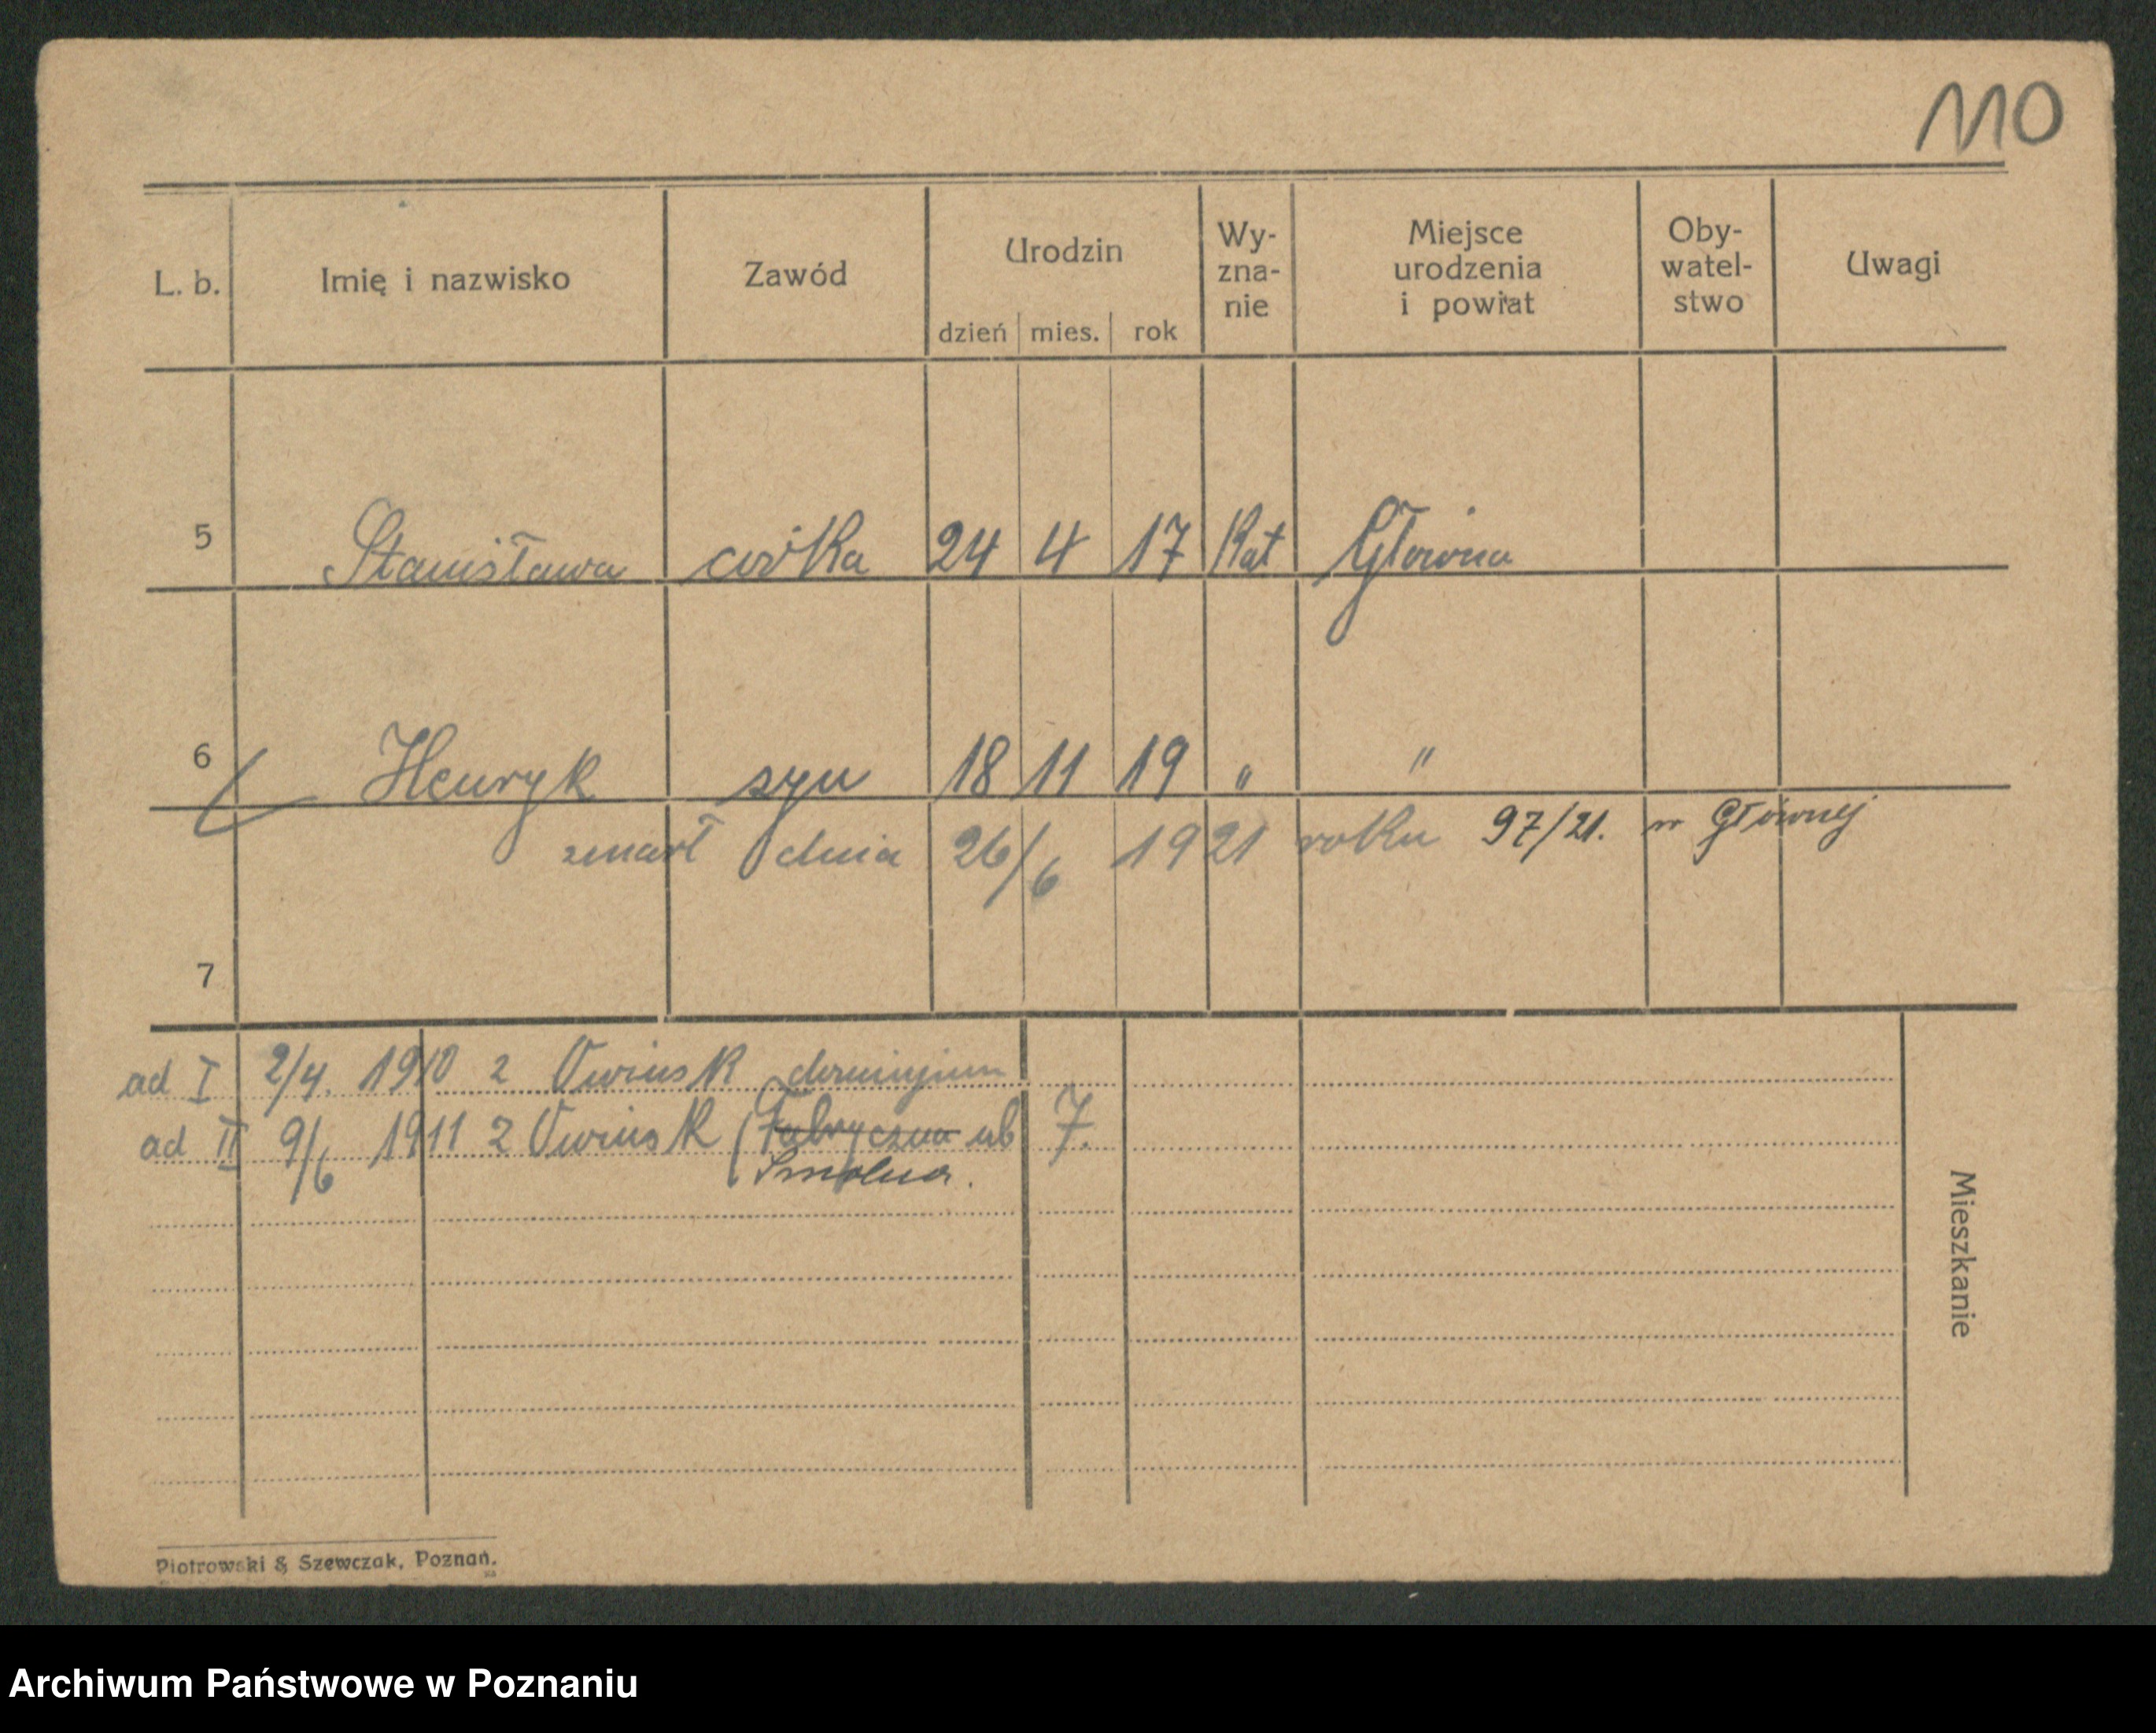 110
L. b. Imię i nazwisko Zawód Urodzin dzień mies. rok Wy-zna-nie Miejsce urodzenia i powiat Oby-watel-stwo Uwagi
5 Stanisława córka 24 4 17 Kat Główna
6 Henryk syn 18 11 19 " "
zmarł dnia 26/6 1921 roku 97/21. w Głównej
7
ad I 2/4. 1910 z Owinsk dominjum
ad II 9/6 1911 z Owinsk (Fabryczna ub 7.
Smolna.
Mieszkanie
Piotrowski & Szewczak, Poznań.
Archiwum Państwowe w Poznaniu